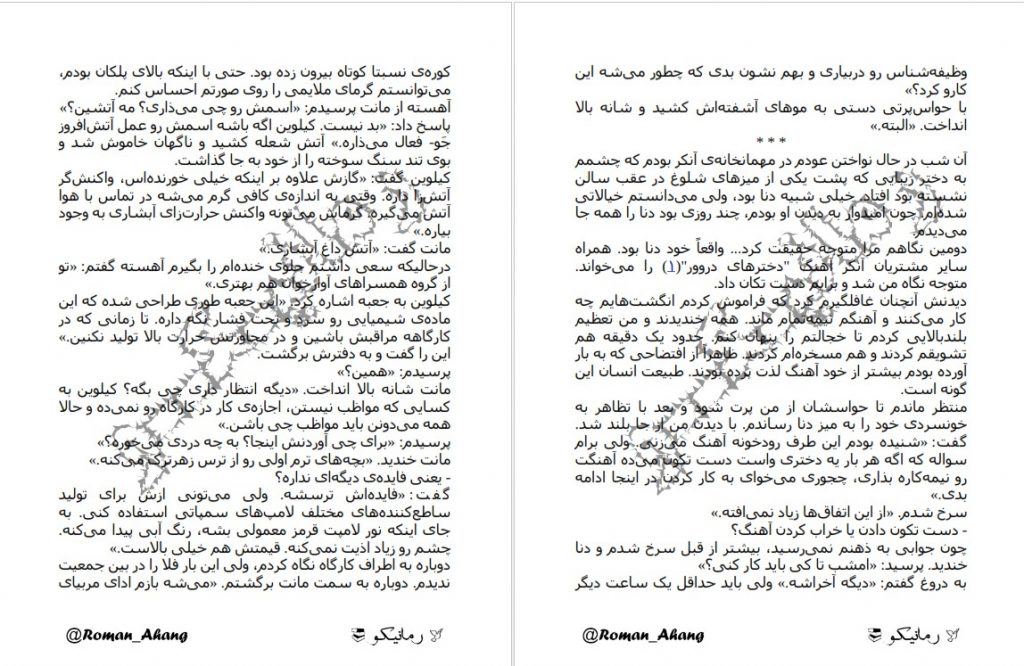 کوره‌ی نسبتا کوتاه بیرون زده بود. حتی با اینکه بالای پلکان بودم،
می‌توانستم گرمای ملایمی را روی صورتم احساس کنم.
آهسته از مانت پرسیدم: «اسمش رو چی می‌ذاری؟ مه آتشین؟»
پاسخ داد: «بد نیست. کیلوین اگه باشه اسمش رو عمل آتش‌افروز
جَو- فعال می‌ذاره.» آتش شعله کشید و ناگهان خاموش شد و
بوی تند سنگ سوخته را از خود به جا گذاشت.
کیلوین گفت: «گازش علاوه بر اینکه خیلی خورنده‌اس، واکنش‌گر
آتش‌زا داره. وقتی به اندازه‌ی کافی گرم می‌شه در تماس با هوا
آتش می‌گیره. گرماش می‌تونه واکنش حرارت‌زای آبشاری به وجود
بیاره.»
مانت گفت: «آتش داغ آبشاری.»
درحالیکه سعی داشتم جلوی خنده‌ام را بگیرم آهسته گفتم: «تو
از گروه همسراهای آوازخوان هم بهتری.»
کیلوین به جعبه اشاره کرد. «این جعبه طوری طراحی شده که این
ماده‌ی شیمیایی رو سرد و تحت فشار نگه داره. تا زمانی که در
کارگاهه مراقبش باشین و در مجاورتش حرارت بالا تولید نکنین.»
این را گفت و به دفترش برگشت.
پرسیدم: «همین؟»
مانت شانه بالا انداخت. «دیگه انتظار داری چی بگه؟ کیلوین به
کسایی که مواظب نیستن، اجازه‌ی کار در کارگاه رو نمی‌ده و حالا
همه می‌دونن باید مواظب چی باشن.»
پرسیدم: «برای چی آوردنش اینجا؟ به چه دردی می‌خوره؟»
مانت خندید. «بچه‌های ترم اولی رو از ترس زهرترک می‌کنه.»
- یعنی فایده‌ی دیگه‌ای نداره؟
گفت: «فایده‌اش ترسشه. ولی می‌تونی ازش برای تولید
ساطع‌کننده‌های مختلف لامپ‌های سمپاتی استفاده کنی. به
جای اینکه نور لامپت قرمز معمولی بشه، رنگ آبی پیدا می‌کنه.
چشم رو زیاد اذیت نمی‌کنه. قیمتش هم خیلی بالاست.»
دوباره به اطراف کارگاه نگاه کردم، ولی این بار فلا را در بین جمعیت
ندیدم. دوباره به سمت مانت برگشتم. «می‌شه بازم ادای مربیای
رمانیکو
@Roman_Ahang
وظیفه‌شناس رو دربیاری و بهم نشون بدی که چطور می‌شه این
کارو کرد؟»
با حواس‌پرتی دستی به موهای آشفته‌اش کشید و شانه بالا
انداخت. «البته.»
* * *
آن شب در حال نواختن عودم در مهمانخانه‌ی آنکر بودم که چشمم
به دختر زیبایی که پشت یکی از میزهای شلوغ در عقب سالن
نشسته بود افتاد. خیلی شبیه دنا بود، ولی می‌دانستم خیالاتی
شده‌ام. چون امیدوار به دیدن او بودم، چند روزی بود دنا را همه جا
می‌دیدم.
دومین نگاهم مرا متوجه حقیقت کرد... واقعاً خود دنا بود. همراه
سایر مشتریان آنکر آهنگ "دخترهای دروور"(۱) را می‌خواند.
متوجه نگاه من شد و برایم دست تکان داد.
دیدنش آنچنان غافلگیرم کرد که فراموش کردم انگشت‌هایم چه
کار می‌کنند و آهنگم نیمه‌تمام ماند. همه خندیدند و من تعظیم
بلندبالایی کردم تا خجالتم را پنهان کنم. حدود یک دقیقه هم
تشویقم کردند و هم مسخره‌ام کردند. ظاهراً از افتضاحی که به بار
آورده بودم بیشتر از خود آهنگ لذت برده بودند. طبیعت انسان این
گونه است.
منتظر ماندم تا حواسشان از من پرت شود و بعد با تظاهر به
خونسردی خود را به میز دنا رساندم. با دیدن من از جا بلند شد.
گفت: «شنیده بودم این طرف رودخونه آهنگ می‌زنی. ولی برام
سواله که اگه هر بار یه دختری واست دست تکون می‌ده آهنگت
رو نیمه‌کاره بذاری، چجوری می‌خوای به کار کردن در اینجا ادامه
بدی.»
سرخ شدم. «از این اتفاق‌ها زیاد نمی‌افته.»
- دست تکون دادن یا خراب کردن آهنگ؟
چون جوابی به ذهنم نمی‌رسید، بیشتر از قبل سرخ شدم و دنا
خندید. پرسید: «امشب تا کی باید کار کنی؟»
به دروغ گفتم: «دیگه آخراشه.» ولی باید حداقل یک ساعت دیگر
رمانیکو
@Roman_Ahang